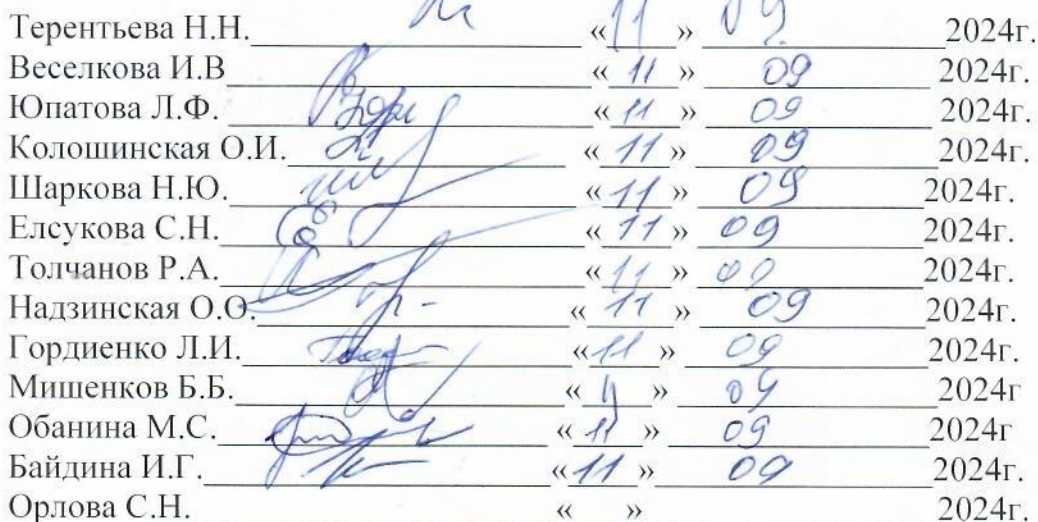 Терентьева Н.Н. «11» 09 2024г.
Веселкова И.В «11» 09 2024г.
Юпатова Л.Ф. «11» 09 2024г.
Колошинская О.И. «11» 09 2024г.
Шаркова Н.Ю. «11» 09 2024г.
Елсукова С.Н. «11» 09 2024г.
Толчанов Р.А. «11» 09 2024г.
Надзинская О.О. «11» 09 2024г.
Гордиенко Л.И. «11» 09 2024г.
Мишенков Б.Б. «11» 09 2024г
Обанина М.С. «11» 09 2024г
Байдина И.Г. «11» 09 2024г.
Орлова С.Н. « » 2024г.